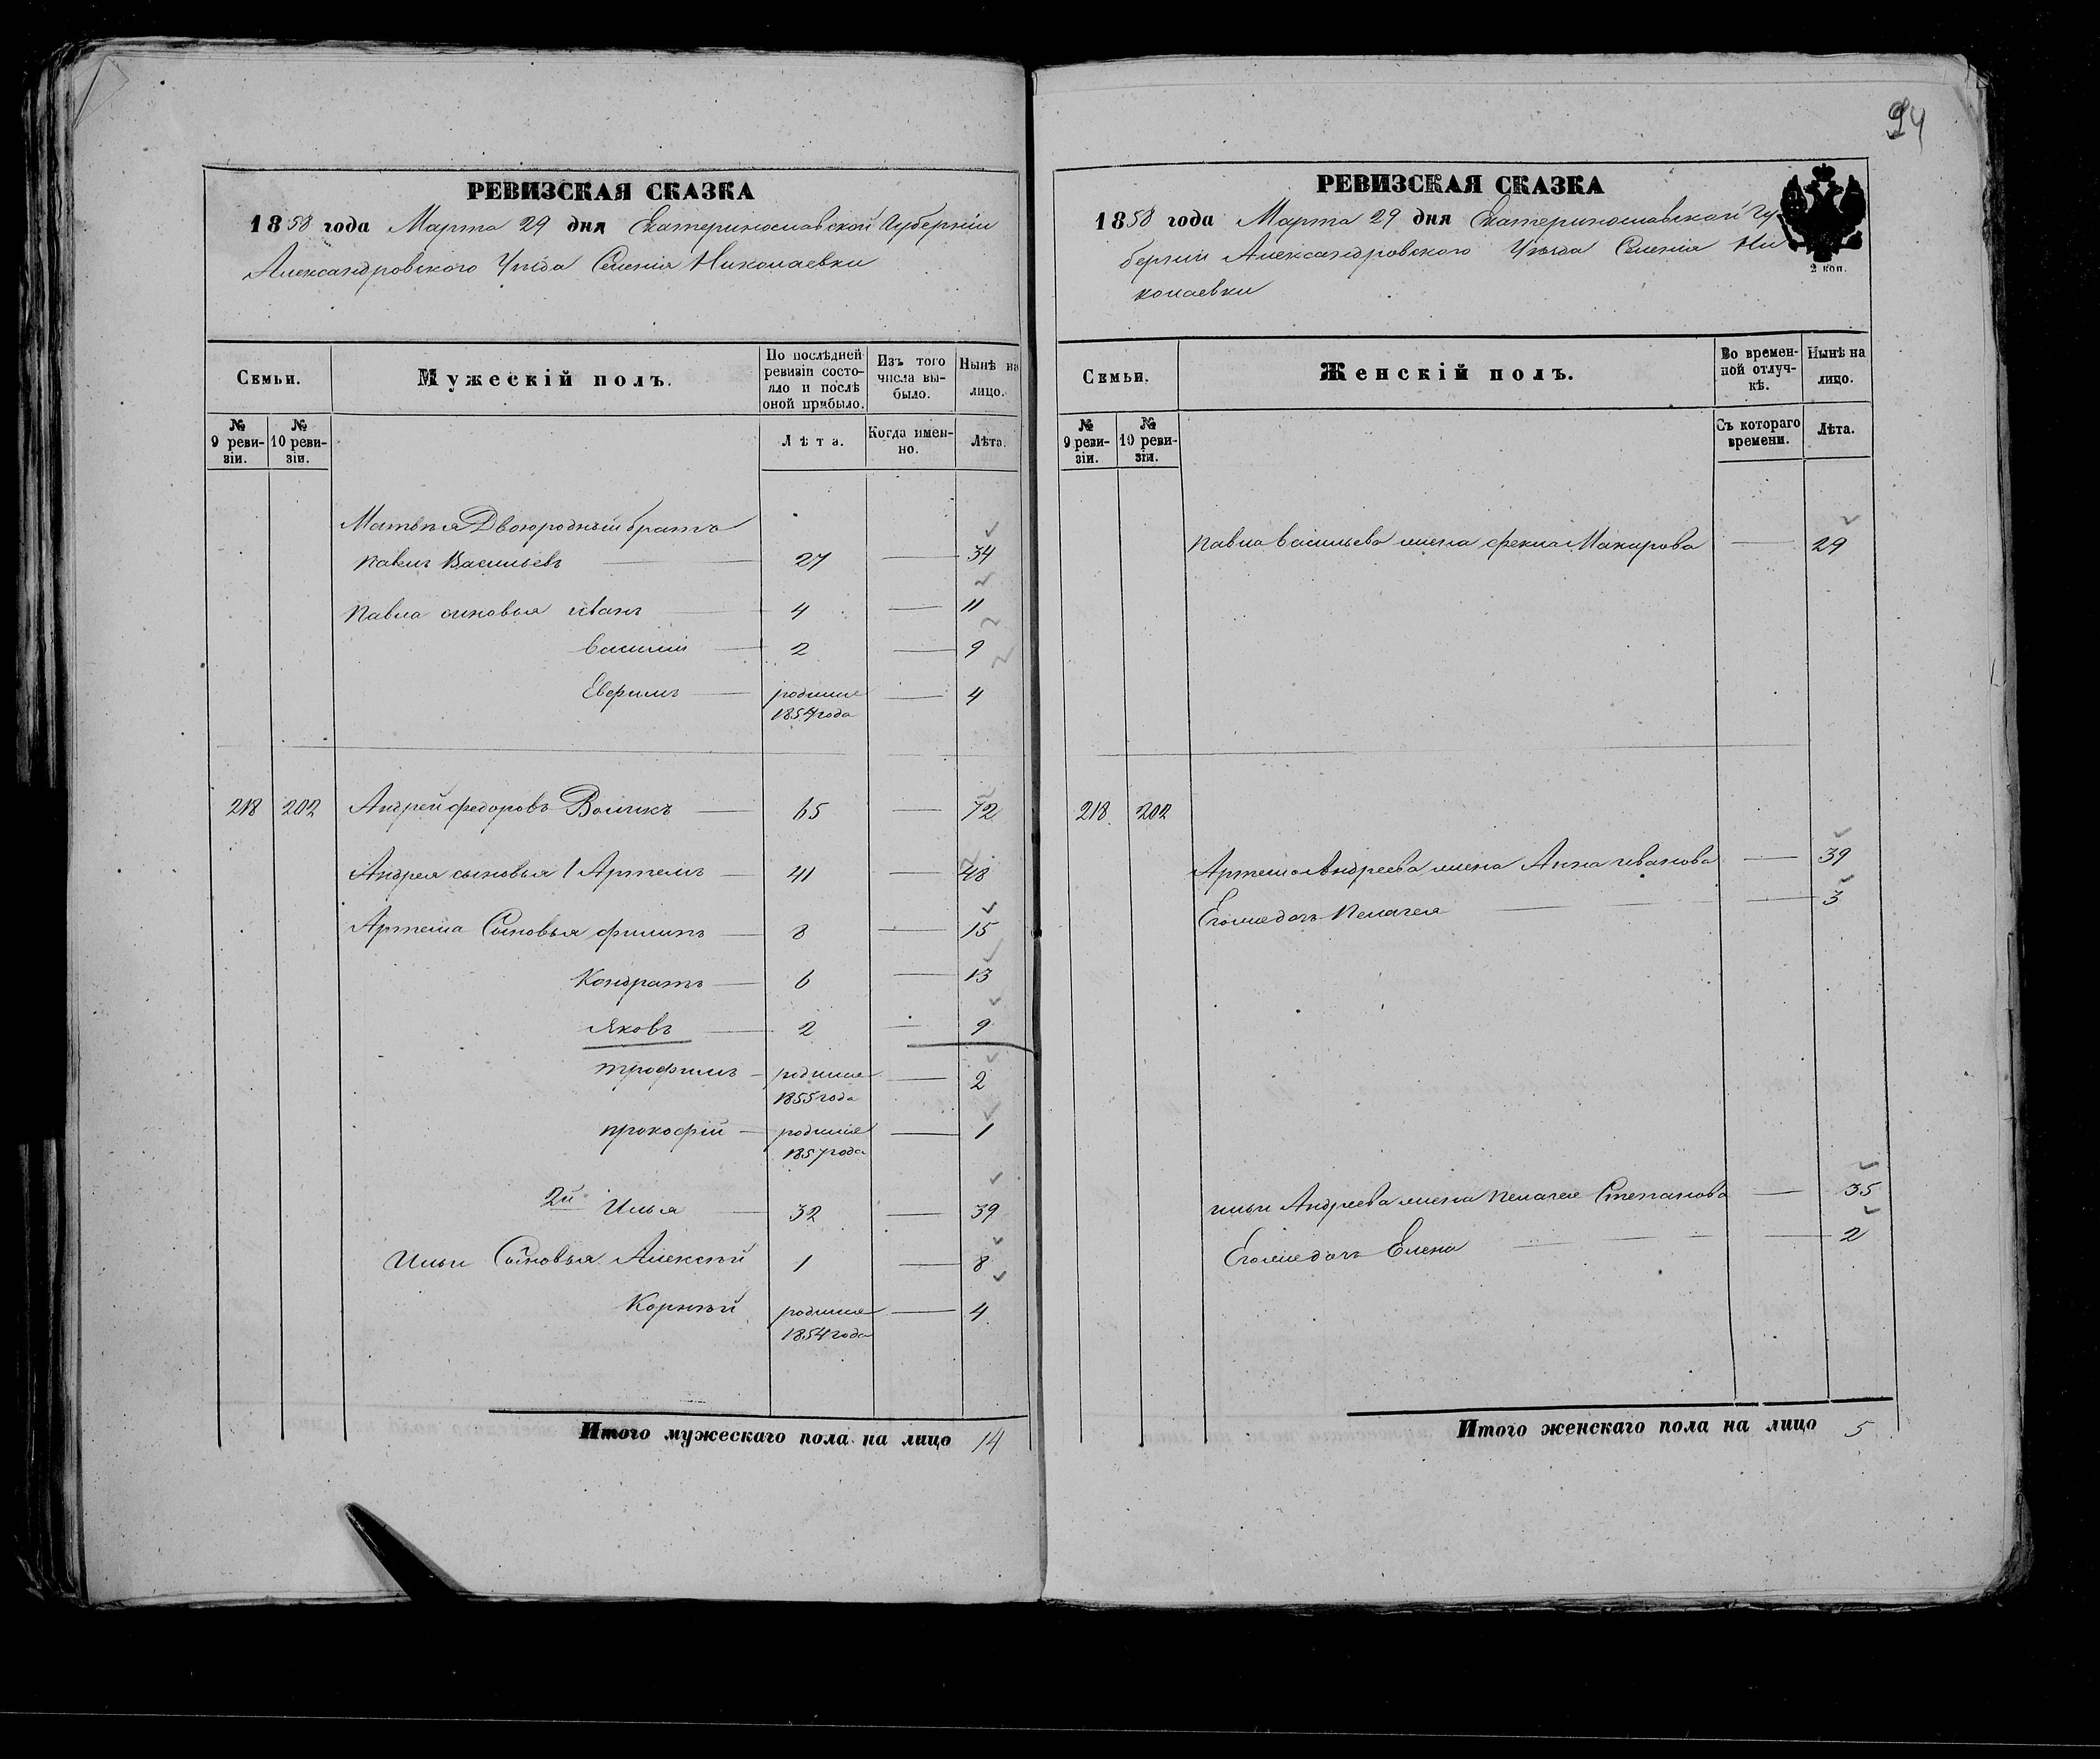 94
РЕВИЗСКАЯ СКАЗКА
1858 года Марта 29 дня Екатеринославской Губернии
Александровского Уѣзда Селенія Николаевки
Семьи.
Мужескій полъ.
По послѣдней ревизіи состояло и послѣ оной прибыло.
Изъ того числа выбыло.
Нынѣ на лицо.
№ 9 ревизіи.
№ 10 ревизіи.
Лѣта.
Когда именно.
Лѣта.
Матвѣя Двоюродный братъ
Павелъ Васильевъ 27 34
Павла сыновья Иванъ 4 11
Василій 2 9
Ефримъ родился 1854 года 4
218 202 Андрей Федоровъ Воликъ 65 72
Андрея сыновья 1 Артемъ 41 48
Артема Сыновья Филипъ 8 15
Кондратъ 6 13
Яковъ 2 9
Трофимъ родился 1855 года 2
Прокофій родился 1857 года 1
2й Илья 32 39
Ильи Сыновья Алексѣй 1 8
Корнѣй родился 1854 года 4
Итого мужескаго пола на лицо 14
РЕВИЗСКАЯ СКАЗКА
1858 года Марта 29 дня Екатеринославской Гу
берніи Александровского Уѣзда Селенія Ни
колаевки
2 коп.
Семьи.
Женскій полъ.
Во временной отлучкѣ.
Нынѣ на лицо.
№ 9 ревизіи.
№ 10 ревизіи.
Съ котораго времени.
Лѣта.
Павла Васильева жена Фекла Макарова 29
218 202
Артема Андреева жена Анна Иванова 39
Его же дочь Пелагея 3
Ильи Андреева жена Пелагея Степанова 35
Его же дочь Елена 2
Итого женскаго пола на лицо 5